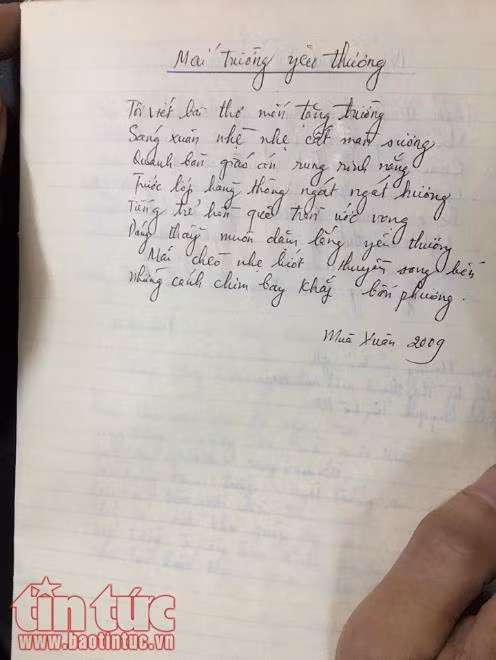 Mái trường yêu thương
Tôi viết bài thơ mến tặng trường
Sáng xuân nhè nhẹ cất màn sương
Quanh bàn giáo án rung rinh nắng
Trước lớp hàng thông ngát ngát hương
Tiếng trẻ hân quê tràn ước vọng
Dáng thầy muôn dặm lắng yêu thương
Mái chèo nhẹ lướt thuyền sang bến
Những cánh chim bay khắp bốn phương.
Mùa Xuân 2009
tin tức
www.baotintuc.vn